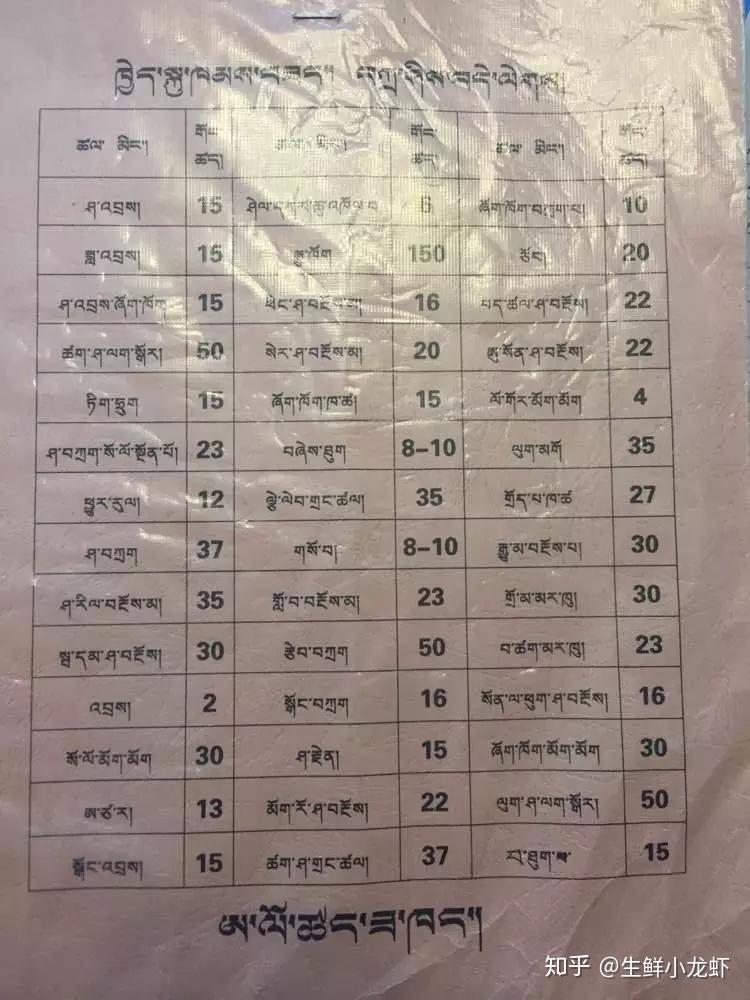 ཁྱེད་སྐུ་ཁམས་བཟང༌། བཀྲ་ཤིས་བདེ་ལེགས།
ཚལ་ མིང༌། གོང་ཚད། ཚལ་ མིང༌། གོང་ཚད། ཚལ་ མིང༌། གོང་ཚད།
ཤ་འབྲས། 15 6 ཞོག་ཁོག 10
འབྲས། 15 150 20
ཤ་འབྲས་ཞོག་ཁོག 15 ཕིང་ཤ་བརྔོས་མ། 16 པད་ཚལ་ཤ་བརྔོས། 22
ཚག་ཤ་ལག་སྐོར། 50 སེར་ཤ་བརྔོས་མ། 20 ཨུ་སོན་ཤ་བརྔོས། 22
ཧྲུག 15 ཞོག་ཁོག་ཁ་ཚ། 15 ལོ་གོར་མོག་མོག 4
ཤ་བཀྲག་སོ་ལོ་སྔོན་པོ། 23 བཞེས་ཐུག 8–10 ལུག་མགོ 35
ཕྱུར་རུལ། 12 ལྕེ་ལེབ་གྲང་ཚལ། 35 གྲོད་པ་ཁ་ཚ 27
ཤ་བཀྲག 37 གསོ་བ། 8–10 རྒྱུ་མ་བརྔོས་པ། 30
ཤ་རིལ་བརྔོས་མ། 35 གློ་བ་བརྔོས་མ། 23 གྲོ་མ་མར་ཁུ། 30
ཤ་བརྔོས། 30 རྩིབ་བཀྲག 50 བ་ཚག་མར་ཁུ། 23
འབྲས། 2 སྒོང་བཀྲག 16 སོན་ལ་ཕུག་ཤ་བརྔོས། 16
སོ་ལོ་མོག་མོག 30 ཤ་རྗེན། 15 ཞོག་ཁོག་མོག་མོག 30
ཨ་ཙ་ར། 13 མོག་རོ་ཤ་བརྔོས། 22 ལུག་ཤ་ལག་སྐོར། 50
སྒོང་འབྲས། 15 ཚག་ཤ་གྲང་ཚལ། 37 ཐུག 15
ཨ་ལོ་ཚང་ཟ་ཁང༌།།
知乎 @生鲜小龙虾